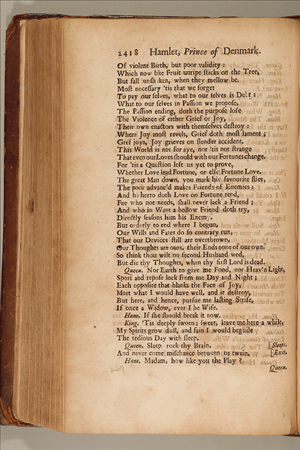 2418 Hamlet, Prince of Denmark.
Of violent Birth, but poor validity:
Which now like Fruit unripe sticks on the Tree,
But fall unshaken, when they mellow be.
Most necessary 'tis that we forget
To pay our selves, what to our selves is Debt:
What to our selves in Passion we propose,
The Passion ending, doth the purpose lose
The Violence of either Grief or Joy,
Their own enactors with themselves destroy:
Where Joy most revels, Grief doth most lament;
Grief joys, Joy grieves on slender accident.
This World is not for aye, nor 'tis not strange
That even our Loves should with our Fortunes change.
For 'tis a Question left us yet to prove,
Whether Love lead Fortune, or else Fortune Love.
The great Man down, you mark his favourite flies,
The poor advanc'd makes Friends of Enemies:
And hitherto doth Love on Fortune tend,
For who not needs, shall never lack a Friend:
And who in Want a hollow Friend doth try,
Directly seasons him his Enemy.
But orderly to end where I begun,
Our Wills and Fates do so contrary run,
That our Devices still are overthrown,
Our Thoughts are ours, their Ends none of our own.
So think thou wilt no second Husband wed,
But die thy Thoughts, when thy first Lord is dead.
Queen. Nor Earth to give me Food, nor Heav'n Light,
Sport and repose lock from me Day and Night;
Each opposite that blanks the Face of Joy,
Meet what I would have well, and it destroy,
But here, and hence, pursue me lasting Strife,
If once a Widow, ever I be Wife.
Ham. If she should break it now.
King. 'Tis deeply sworn; sweet, leave me here a while,
My Spirits grow dull, and fain I would beguile
The tedious Day with sleep.
Queen. Sleep rock thy Brain, [Sleeps.
And never come mischance between us twain. [Exit.
Ham. Madam, how like you the Play?
Queen.